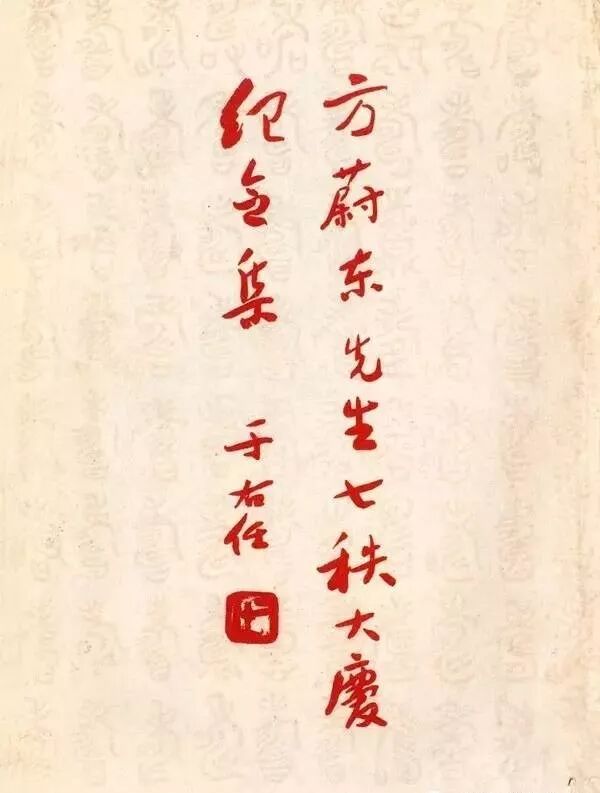 方蔚东先生七秩大慶
纪念集 于右任